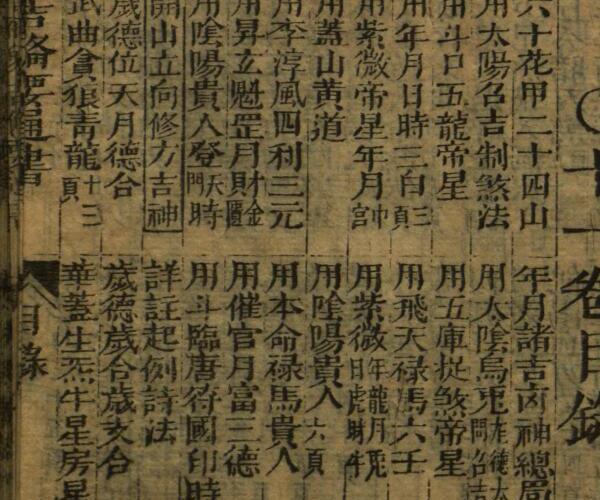 十一卷目錄
六十花甲二十四山
年月諸吉凶神總局
用太陽名吉制煞法
用太陰烏兎
用斗口五龍帝星
用五庫捉煞帝星
用年月日時三白三頁
用飛天祿馬六壬
用紫微帝星年月中宮
用紫微年龍月兎日虎時牛
用蓋山黄道
用陰陽貴人六頁
用李淳風四利三元
用本命祿馬貴人
用昇立魁罡月財金匱
用催官月富三德
用陰陽貴人登天門時
用斗臨唐符國印時
開山立向修方吉神
詳註起例詩法
歲德位天月德合
歲德歲合歲支合
武曲貪狼青龍十三頁
華蓋生炁牛星房星
通書
目錄